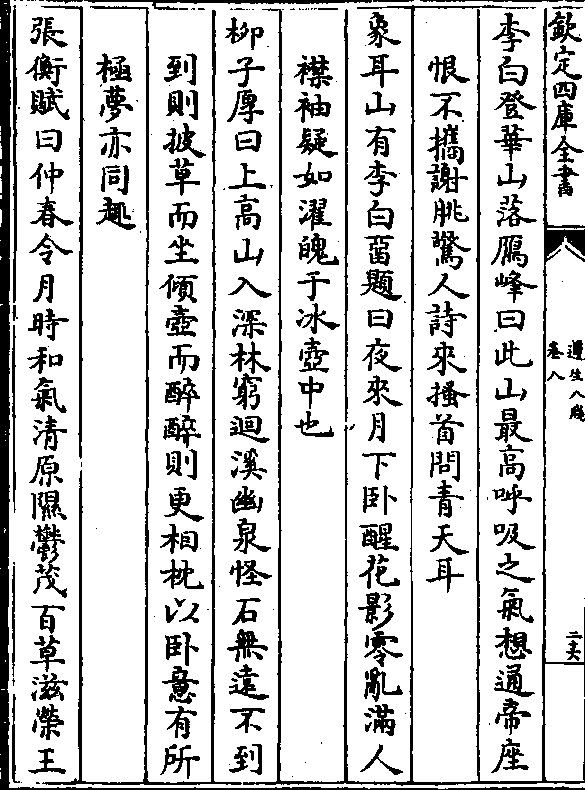 欽定四庫全書
遵生八牋
卷八
二十六
李白登華山落鴈峰曰此山最高呼吸之氣想通帝座
恨不攜謝朓驚人詩來搔首問青天耳
象耳山有李白留題曰夜來月下卧醒花影零亂滿人
襟袖疑如濯魄于冰壺中也
柳子厚曰上高山入深林窮迴溪幽泉怪石無遠不到
到則披草而坐傾壺而醉醉則更相枕以卧意有所
極夢亦同趣
張衡賦曰仲春令月時和氣清原隰鬱茂百草滋榮王